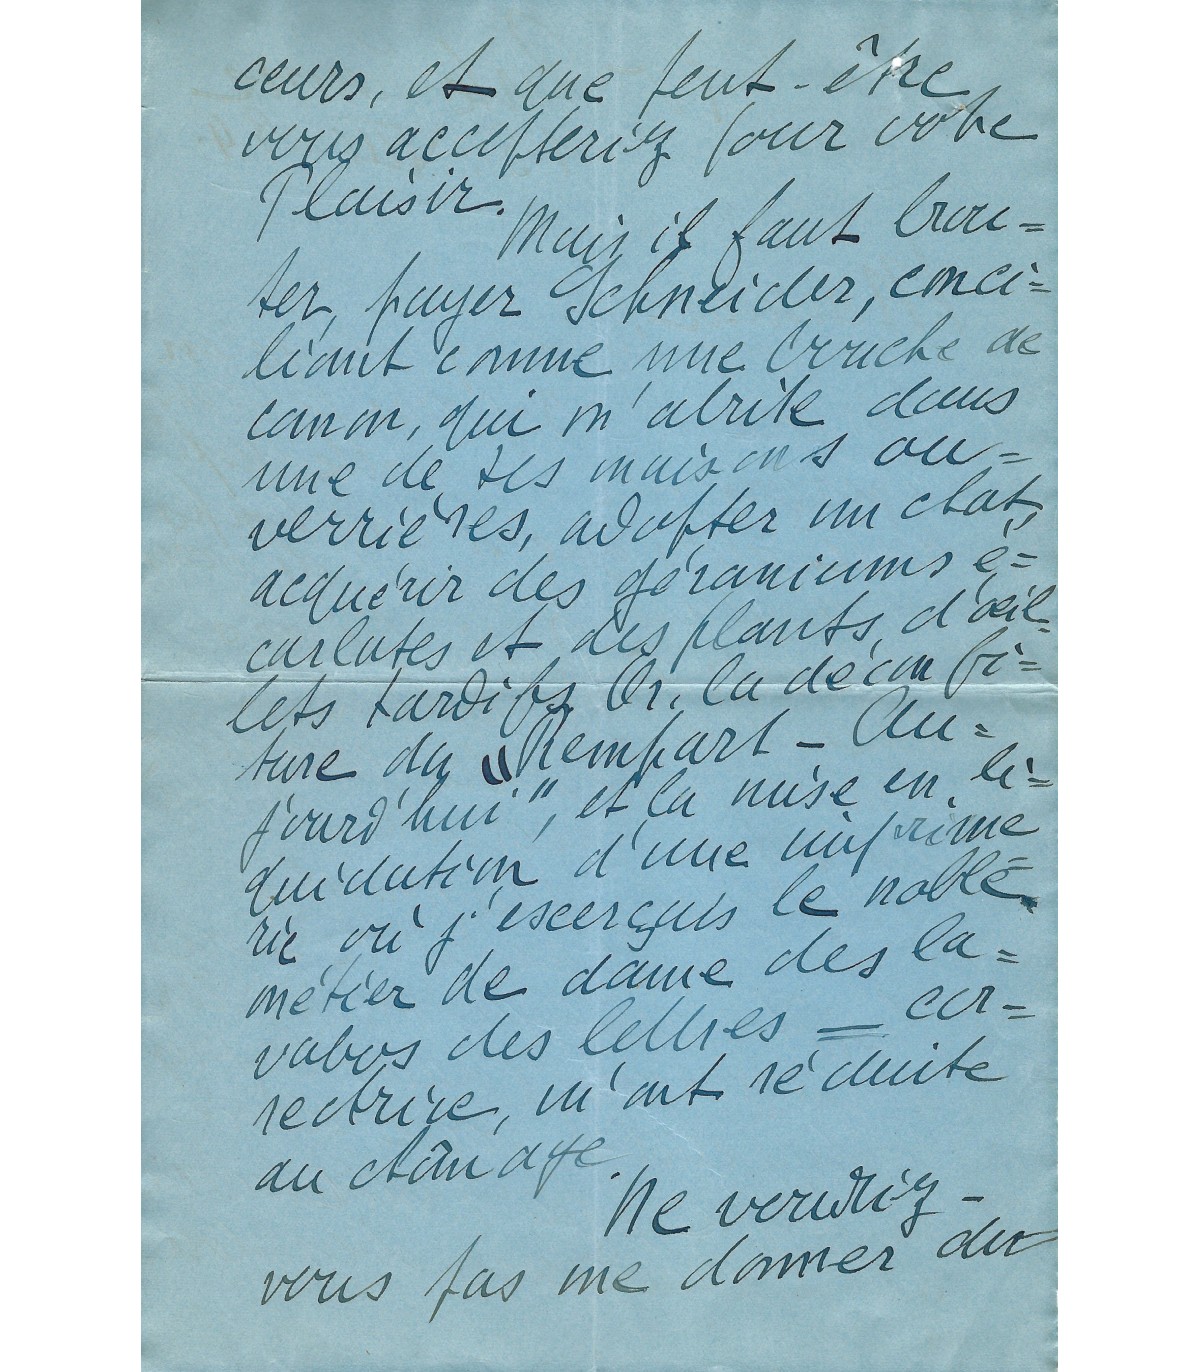 ceurs, et que peut-être
vous accepteriez pour votre
plaisir.
Mais il faut brou=
ter, payer Schneider, conci=
liant comme une bouche de
canon, qui m'abrite dans
une de ses maisons ou=
vrières, adopter un chat,
acquérir des géraniums é=
carlates et des plants d'œil=
lets tardifs. Or, la déconfi=
ture du "Rempart - Au=
jourd'hui", et la mise en li=
quidation d'une imprime
rie où j'exerçais le noble
métier de dame des la=
vabos des lettres = cor=
rectrice, m'ont réduite
au chômage.
Ne voudriez-
vous pas me donner du